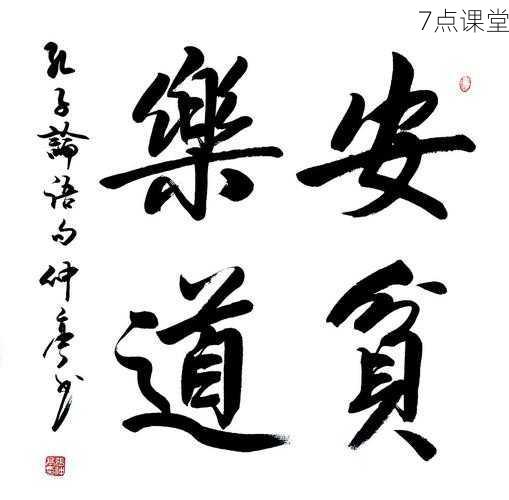 7点课堂
安貧
樂道
孔子論语句仲亭书